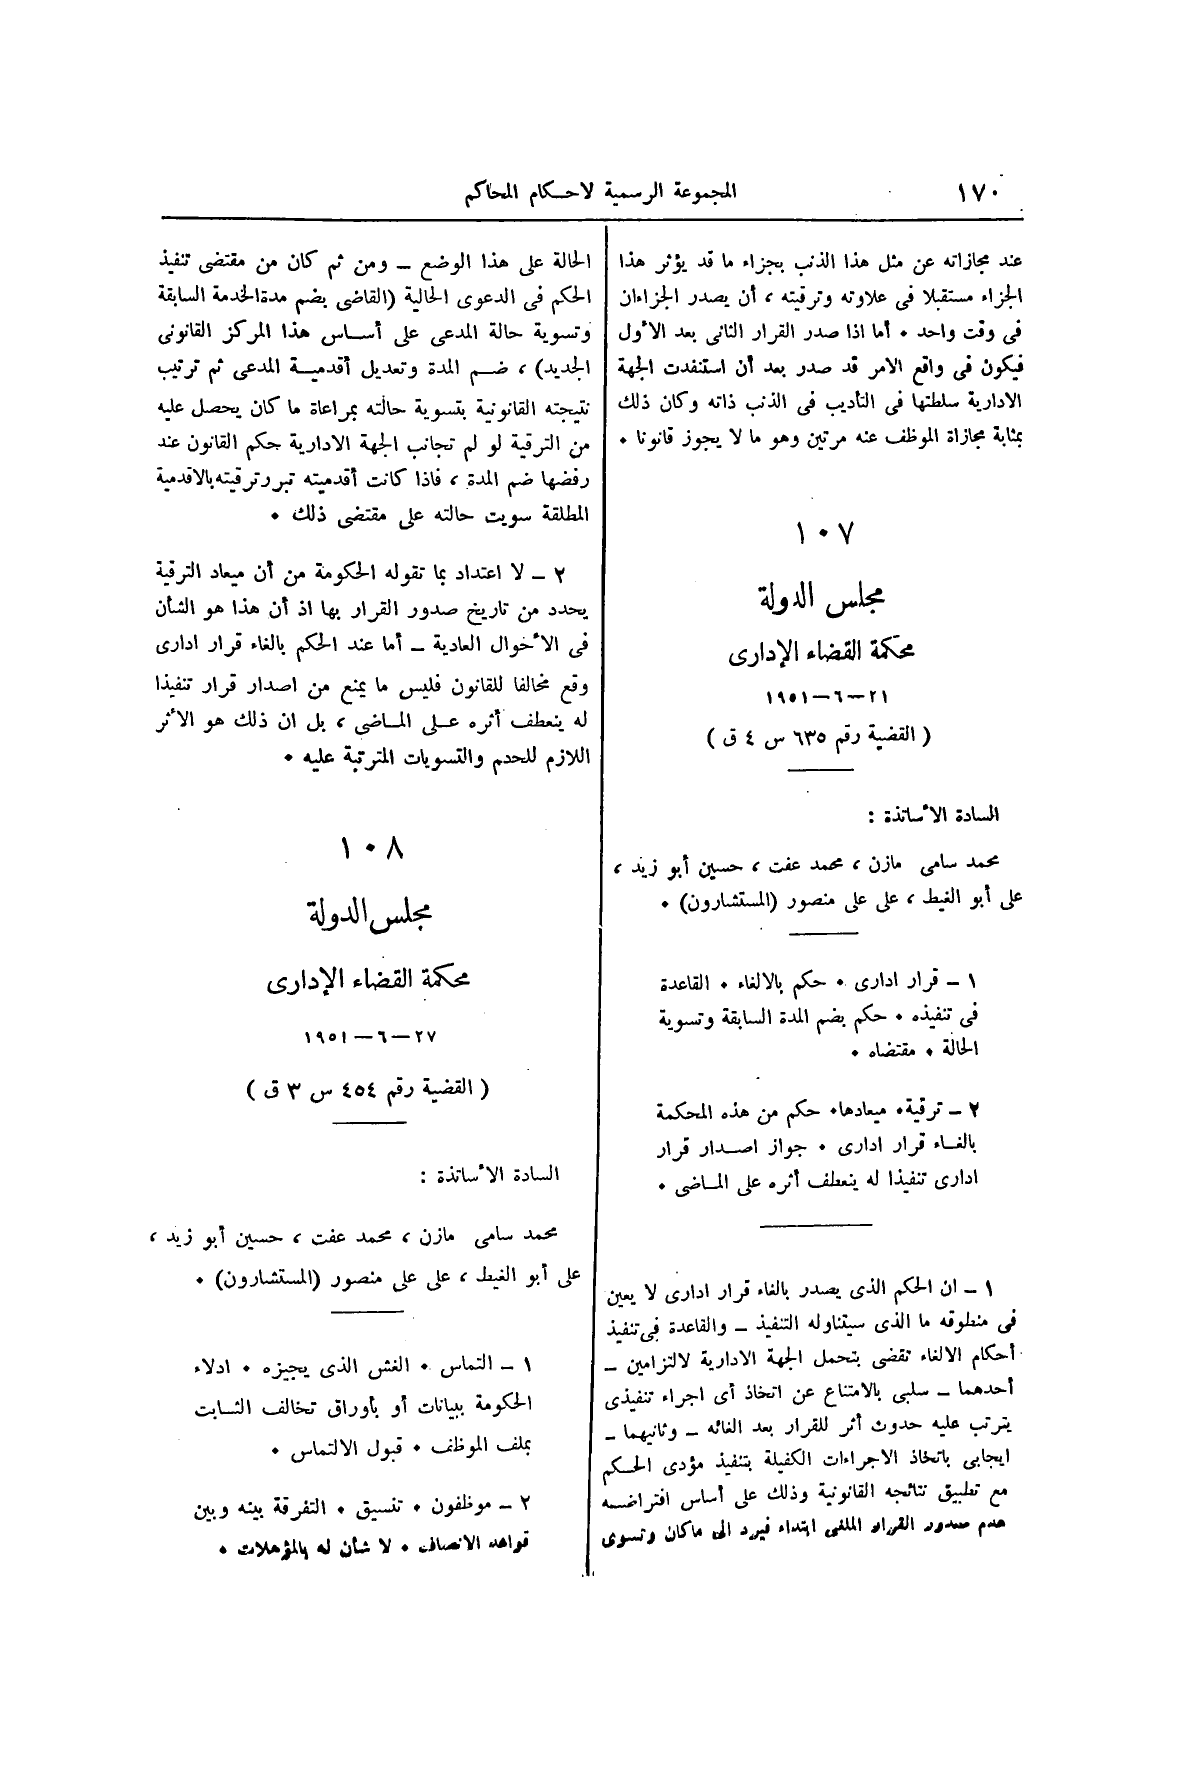 ١٧٠
المجموعة الرسمية لاحكام المحاكم
عند مجازاته عن مثل هذا الذنب بجزاء ما قد يؤثر هذا
الجزاء مستقبلا فى علاوته وترقيته ، أن يصدر الجزاءان
فى وقت واحد ٠ أما اذا صدر القرار الثانى بعد الأول
فيكون فى واقع الامر قد صدر بعد أن استنفدت الجهة
الادارية سلطتها فى التأديب فى الذنب ذاته وكان ذلك
بمثابة مجازاة الموظف عنه مرتين وهو ما لا يجوز قانونا ٠
١٠٧
مجلس الدولة
محكمة القضاء الإدارى
٢١ – ٦ – ١٩٥١
( القضية رقم ٦٣٥ س ٤ ق )
السادة الأساتذة :
محمد سامى مازن ، محمد عفت ، حسين أبو زيد ،
على أبو الغيط ، على على منصور (المستشارون) ٠
١ – قرار ادارى ٠ حكم بالالغاء ٠ القاعدة
فى تنفيذه ٠ حكم بضم المدة السابقة وتسوية
الحالة ٠ مقتضاه ٠
٢ – ترقية٠ ميعادها٠ حكم من هذه المحكمة
بالغاء قرار ادارى ٠ جواز اصدار قرار
ادارى تنفيذا له ينعطف أثره على الماضى ٠
١ – ان الحكم الذى يصدر بالغاء قرار ادارى لا يعين
فى منطوقه ما الذى سيتناوله التنفيذ – والقاعدة فى تنفيذ
أحكام الالغاء تقضى بتحمل الجهة الادارية لالتزامين –
أحدهما – سلبى بالامتناع عن اتخاذ أى اجراء تنفيذى
يترتب عليه حدوث أثر للقرار بعد الغائه – وثانيهما –
ايجابى باتخاذ الاجراءات الكفيلة بتنفيذ مؤدى الحكم
مع تطبيق نتائجه القانونية وذلك على أساس افتراضه
عدم صدور القرار الملغى ابتداء فيرد الى ماكان وتسوى
الحالة على هذا الوضع – ومن ثم كان من مقتضى تنفيذ
الحكم فى الدعوى الحالية (القاضى بضم مدة الخدمة السابقة
وتسوية حالة المدعى على أساس هذا المركز القانونى
الجديد) ، ضم المدة وتعديل أقدمية المدعى ثم ترتيب
نتيجته القانونية بتسوية حالته بمراعاة ما كان يحصل عليه
من الترقية لو لم تجانب الجهة الادارية حكم القانون عند
رفضها ضم المدة ، فاذا كانت أقدميته تبرر ترقيته بالاقدمية
المطلقة سويت حالته على مقتضى ذلك ٠
٢ – لا اعتداد بما تقوله الحكومة من أن ميعاد الترقية
يحدد من تاريخ صدور القرار بها اذ أن هذا هو الشأن
فى الأحوال العادية – أما عند الحكم بالغاء قرار ادارى
وقع مخالفا للقانون فليس ما يمنع من اصدار قرار تنفيذا
له ينعطف أثره على الماضى ، بل ان ذلك هو الأثر
اللازم للحدم والتسويات المترتبة عليه ٠
١٠٨
مجلس الدولة
محكمة القضاء الإدارى
٢٧ – ٦ – ١٩٥١
( القضية رقم ٤٥٤ س ٣ ق )
السادة الأساتذة :
محمد سامى مازن ، محمد عفت ، حسين أبو زيد ،
على أبو الغيط ، على على منصور (المستشارون) ٠
١ – التماس ٠ الغش الذى يجيزه ٠ ادلاء
الحكومة ببيانات أو بأوراق تخالف الثابت
بملف الموظف ٠ قبول الالتماس ٠
٢ – موظفون ٠ تنسيق ٠ التفرقة بينه وبين
قواعد الانصاف ٠ لا شأن له بالمؤهلات ٠